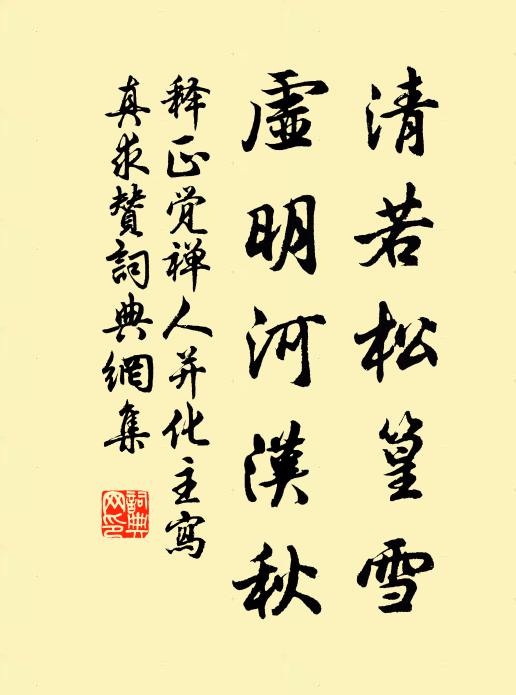 清若松篁雪
虚明河漢秋
释正觉禅人并化主寫
真求赞詞典網集
詞典
网印